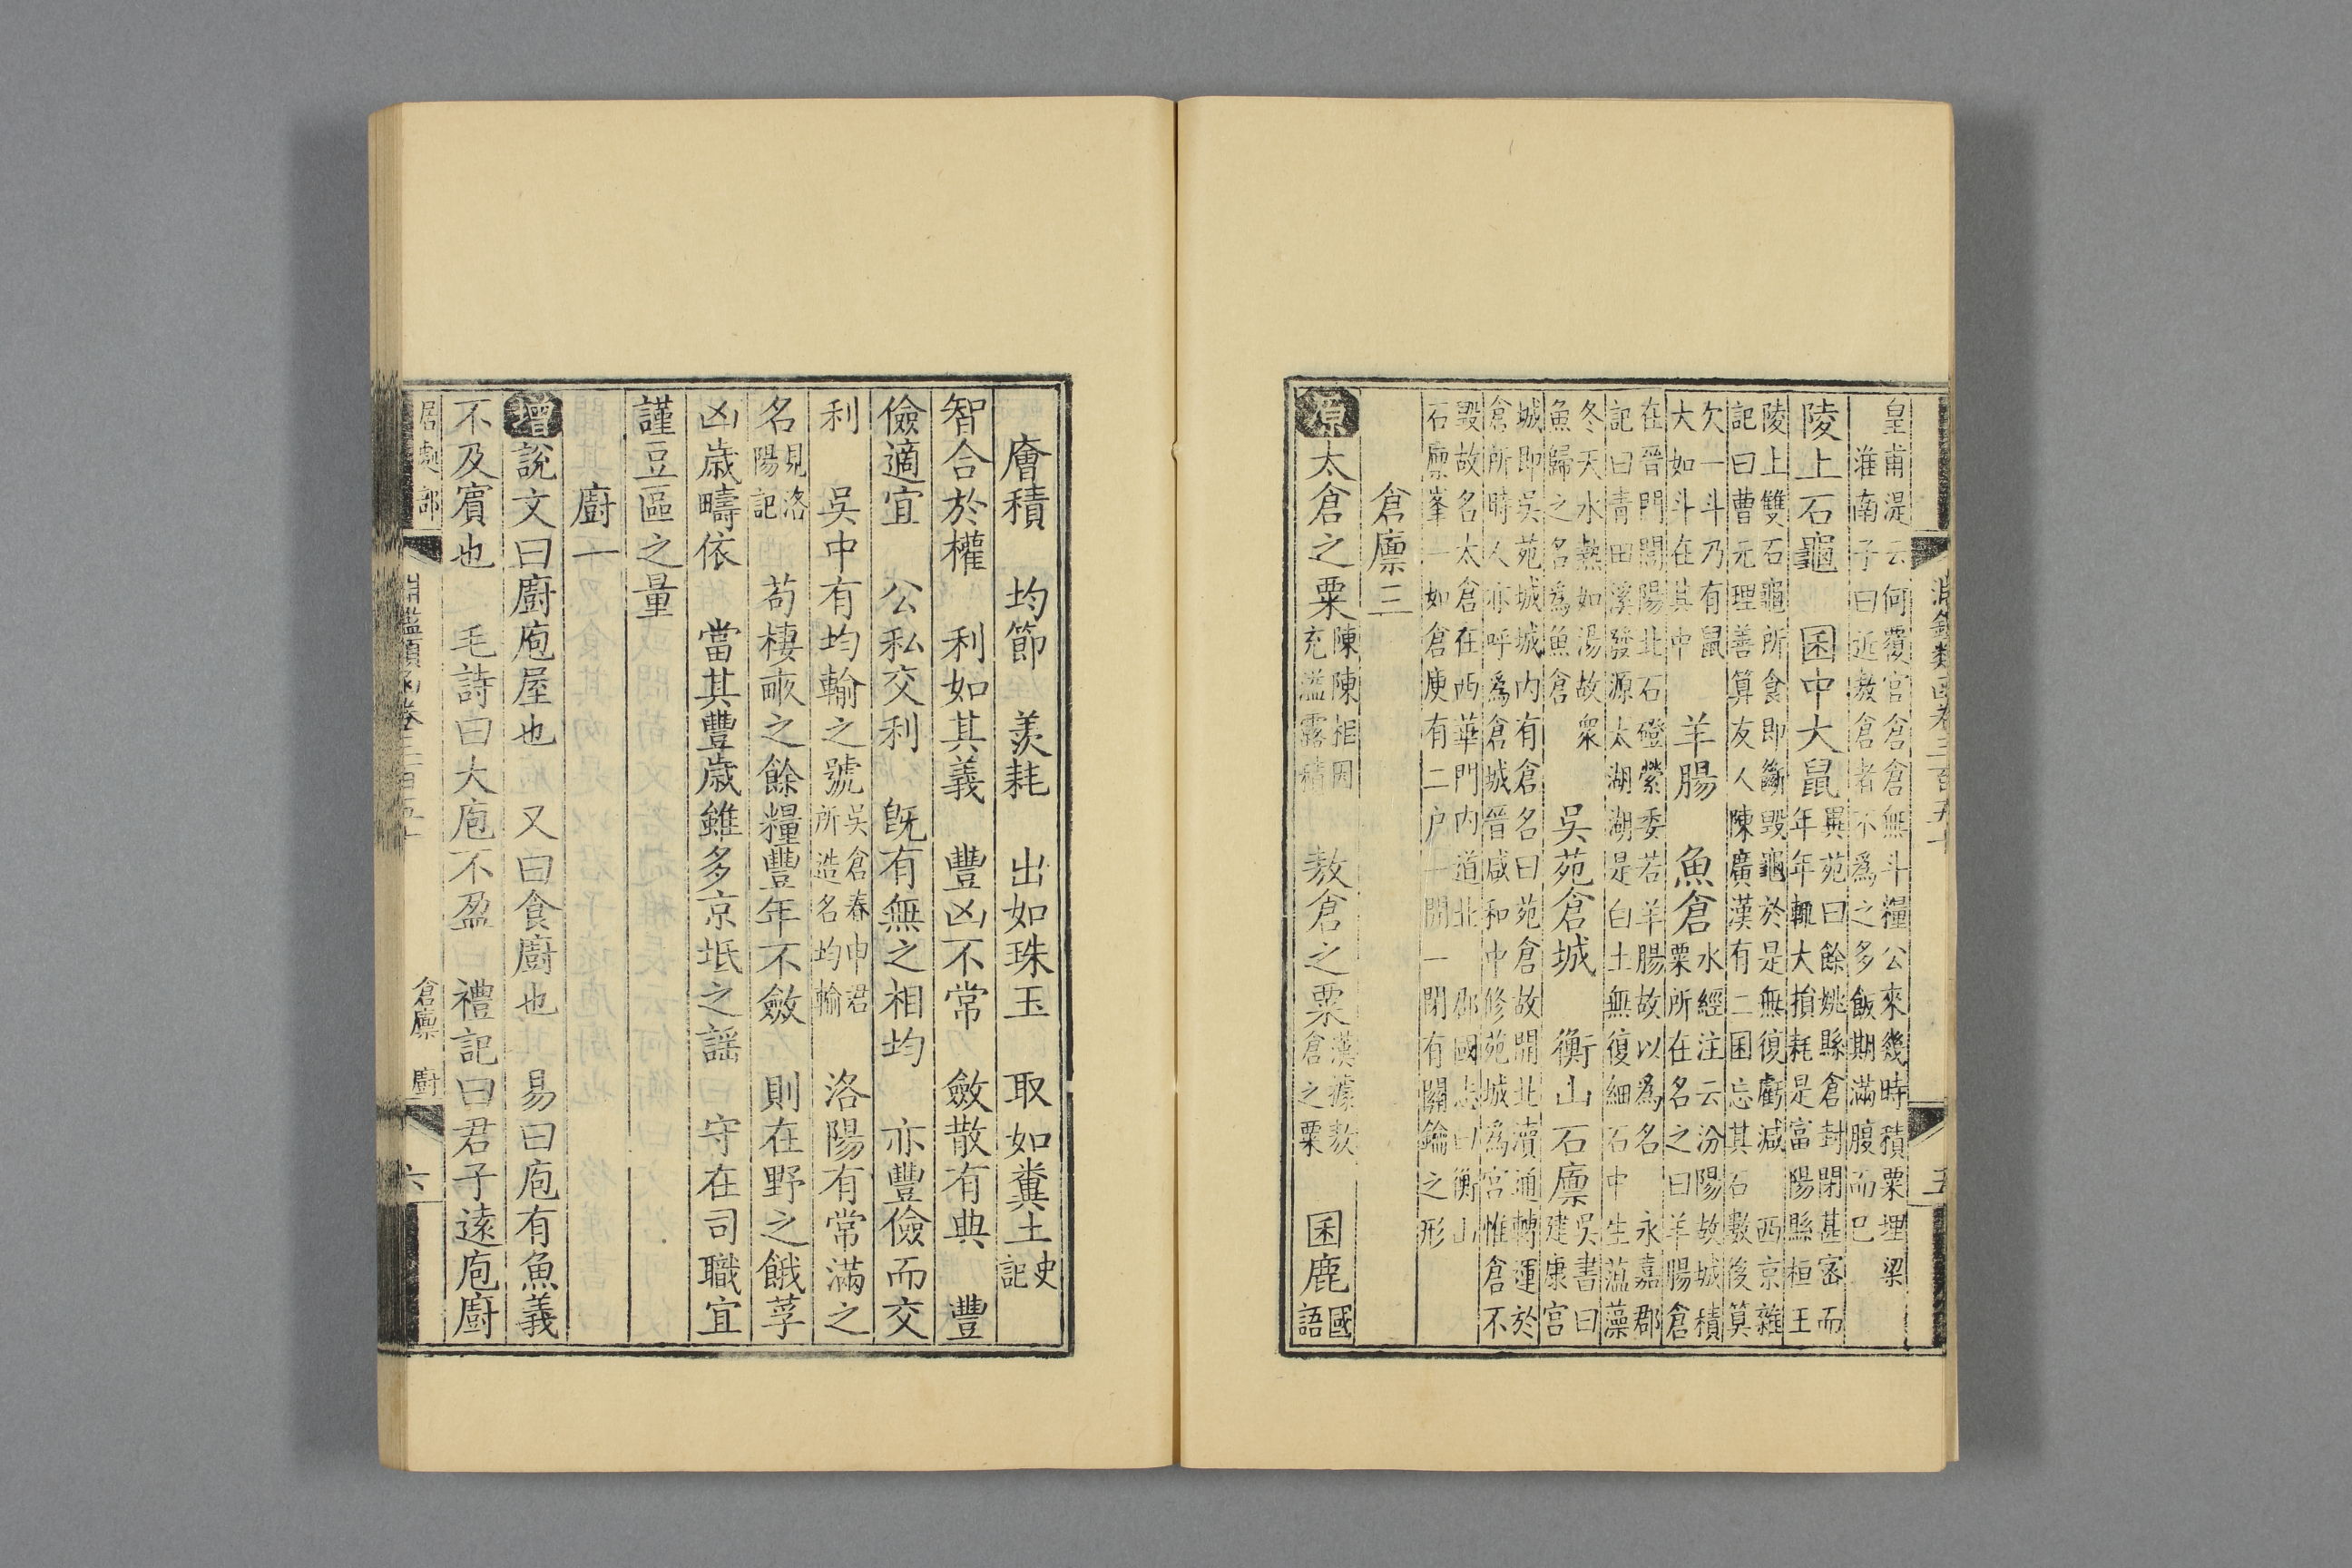 淵鑑類函卷三百五十 五
皇甫湜云何覆官倉倉無斗糧公來幾時積粟埋梁
淮南子曰近敖倉者不爲之多飯期滿腹而已
陵上石龜 囷中大鼠 異苑曰餘姚縣倉封閉甚密而年年輒大損耗是富陽縣桓王
陵上雙石龜所食即斷毀龜於是無復虧減 西京雜
記曰曹元理善算友人陳廣漢有二囷忘其石數後算
欠一斗乃有鼠大如斗在其中 羊腸 魚倉 水經注云汾陽故城積粟所在名之曰羊陽倉
在晉門關陽北石磴縈委若羊腸故以爲名 永嘉郡
記曰青田溪發源太湖湖是白土無復細石中生薀藻
冬天水熱如湯故衆魚歸之名爲魚倉 吳苑倉城 衡山石廪 吳書曰建康宮
城即吳苑城城内有倉名曰苑倉故開北瀆通轉運於
倉所時人亦呼爲倉城晉咸和中修苑城爲宮惟倉不
毀故名太倉在西華門内道北 郡國志曰衡山
石廪峯一如倉庾有二户一開一閉有關鑰之形
倉廪三
原 太倉之粟 陳陳相因充溢露積 敖倉之粟 漢據敖倉之粟 囷鹿 國語
廥積 均節 羨耗 出如珠玉 取如糞土 史記
智合於權 利如其義 豐凶不常 斂散有典 豐
儉適宜 公私交利 旣有無之相均 亦豐儉而交
利 吳中有均輸之號 吳倉春申君所造名均輸 洛陽有常滿之
名 見洛陽記 苟棲畝之餘糧豐年不斂 則在野之餓莩
凶歲疇依 當其豐歲雖多京坻之謡 守在司職宜
謹豆區之量
廚一
增 說文曰廚庖屋也 又曰食廚也 易曰庖有魚義
不及賓也 毛詩曰大庖不盈 禮記曰君子遠庖廚
居處部 淵鑑類函卷三百五十 倉廪 廚 六